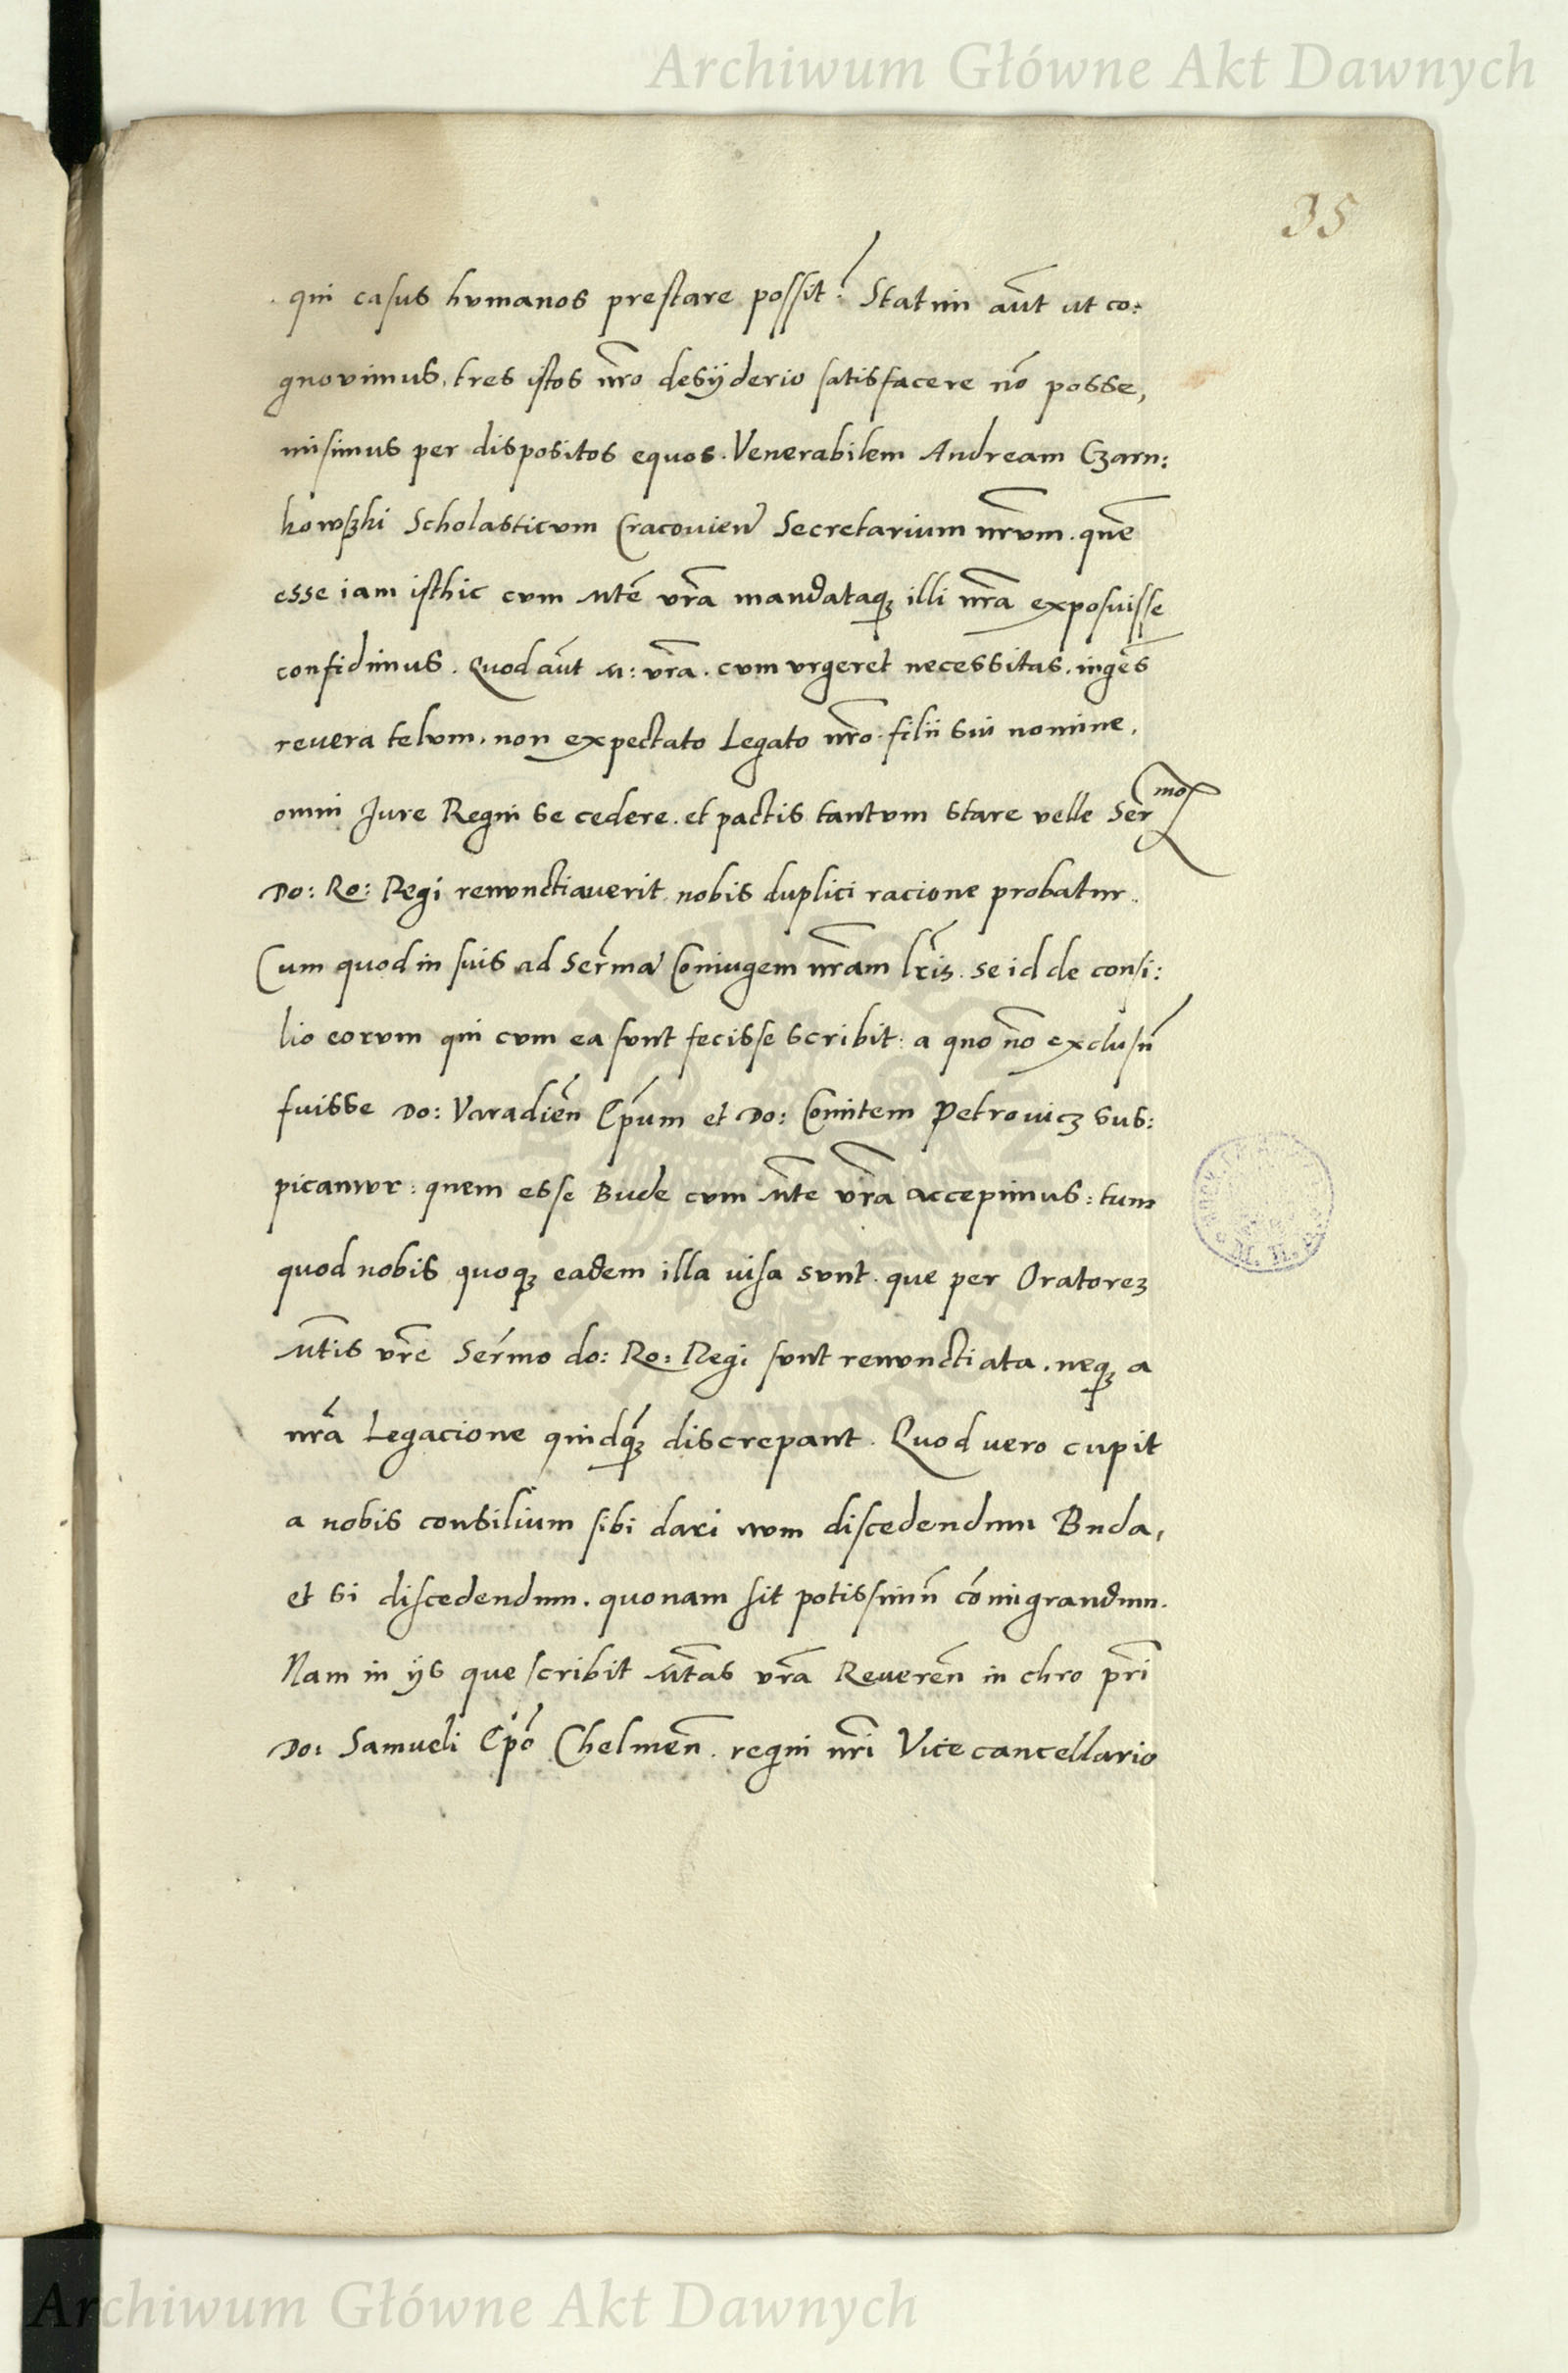 Archiwum Główne Akt Dawnych
35
qui casus humanos prestare possit? Statim aūt ut co:
gnovimus, tres istos nr̄o desyderio satisfacere nō posse,
misimus per dispositos equos. Venerabilem Andream Czarn:
kowski Scholasticum Cracovien̄ Secretarium nr̄um. quē
esse iam isthic cum Mtē vr̄a mandataq; illi nr̄a exposuisse
confidimus. Quod aūt M: vr̄a. cum urgeret necessitas. ingēs
revera telum, non expectato Legato nr̄o. filii sui nomine,
omni Jure Regni se cedere. et pactis tantum stare velle Ser^mo
Do: Ro: Regi renunctiaverit. nobis duplici racione probatur.
Cum quod in suis ad Ser̄mā Coniugem nr̄am lr̄is. se id de consi:
lio eorum qui cum ea sunt fecisse scribit: a quo nō exclusū
fuisse Do: Varadien̄ Ep̄um et Do: Comitem Petrovicz sus:
picamur: quem esse Bude cum M̄te vr̄a accepimus: tum
quod nobis quoq; eadem illa visa sunt. que per Oratores
M̄tis vr̄e Ser̄mo do: Ro: Regi sunt renunctiata. neq; a
nr̄a Legacione quidq; discrepant. Quod vero cupit
a nobis consilium sibi dari num discedendum Buda,
et si discedendum. quonam sit potissimū cōmigrandum.
Nam in ijs que scribit M̄tas vr̄a Reveren̄ in chro pr̄i
Do: Samueli Ep̄o Chelmen̄. regni nr̄i Vicecancellario
Archiwum Główne Akt Dawnych